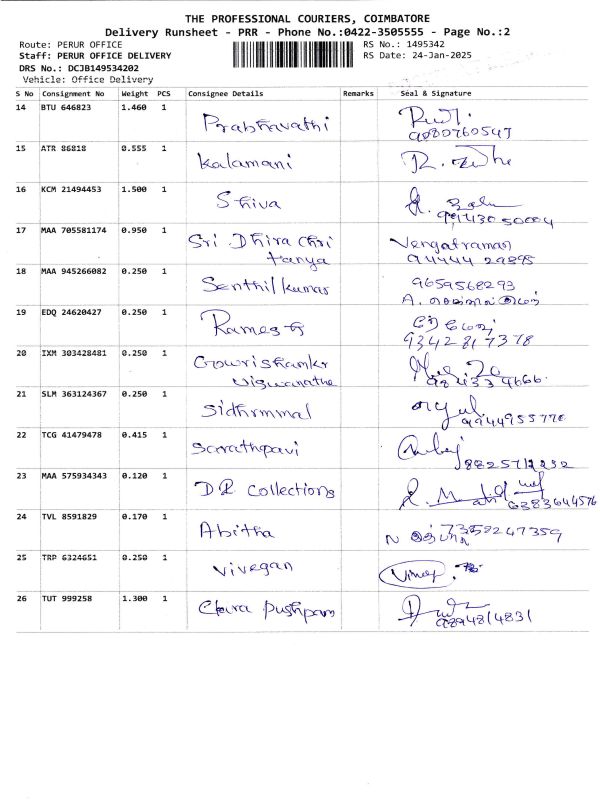 THE PROFESSIONAL COURIERS, COIMBATORE
Delivery Runsheet - PRR - Phone No.:0422-3505555 - Page No.:2
Route: PERUR OFFICE
RS No.: 1495342
Staff: PERUR OFFICE DELIVERY
RS Date: 24-Jan-2025
DRS No.: DCJB149534202
Vehicle: Office Delivery
S No Consignment No Weight PCS Consignee Details Remarks Seal & Signature
14 BTU 646823 1.460 1 Prabhavathi
9080760547
15 ATR 86818 0.555 1 Kalamani
16 KCM 21494453 1.500 1 Shiva
17 MAA 705581174 0.950 1 Sri Dhira Chri Vengatraman
tanya 94444 29895
18 MAA 945266082 0.250 1 Senthil kumar 9659568293
A.
19 EDQ 24620427 0.250 1 Ramesh
9342817378
20 IXM 303428481 0.250 1 Gowrishankr
Viswanatha
21 SLM 363124367 0.250 1 Sidhrmmal
9944955770
22 TCG 41479478 0.415 1 Sarathpavi
23 MAA 575934343 0.120 1 DR Collections
6383644576
24 TVL 8591829 0.170 1 Abitha 7358247359
25 TRP 6324651 0.250 1 Vivegan
26 TUT 999258 1.300 1 Pushpam
9894814831